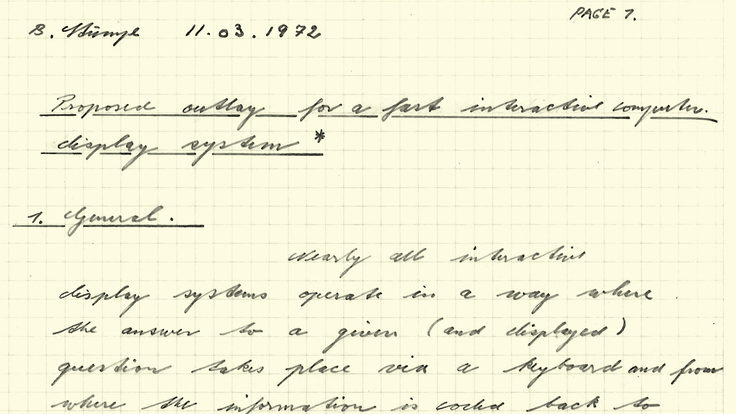 PAGE 1.
B. Stumpe 11.03.1972
Proposed outlay for a fast interactive computer
display system *
1. General.
Nearly all interactive
display systems operate in a way where
the answer to a given (and displayed)
question takes place via a keyboard and from
where the information is coded back to